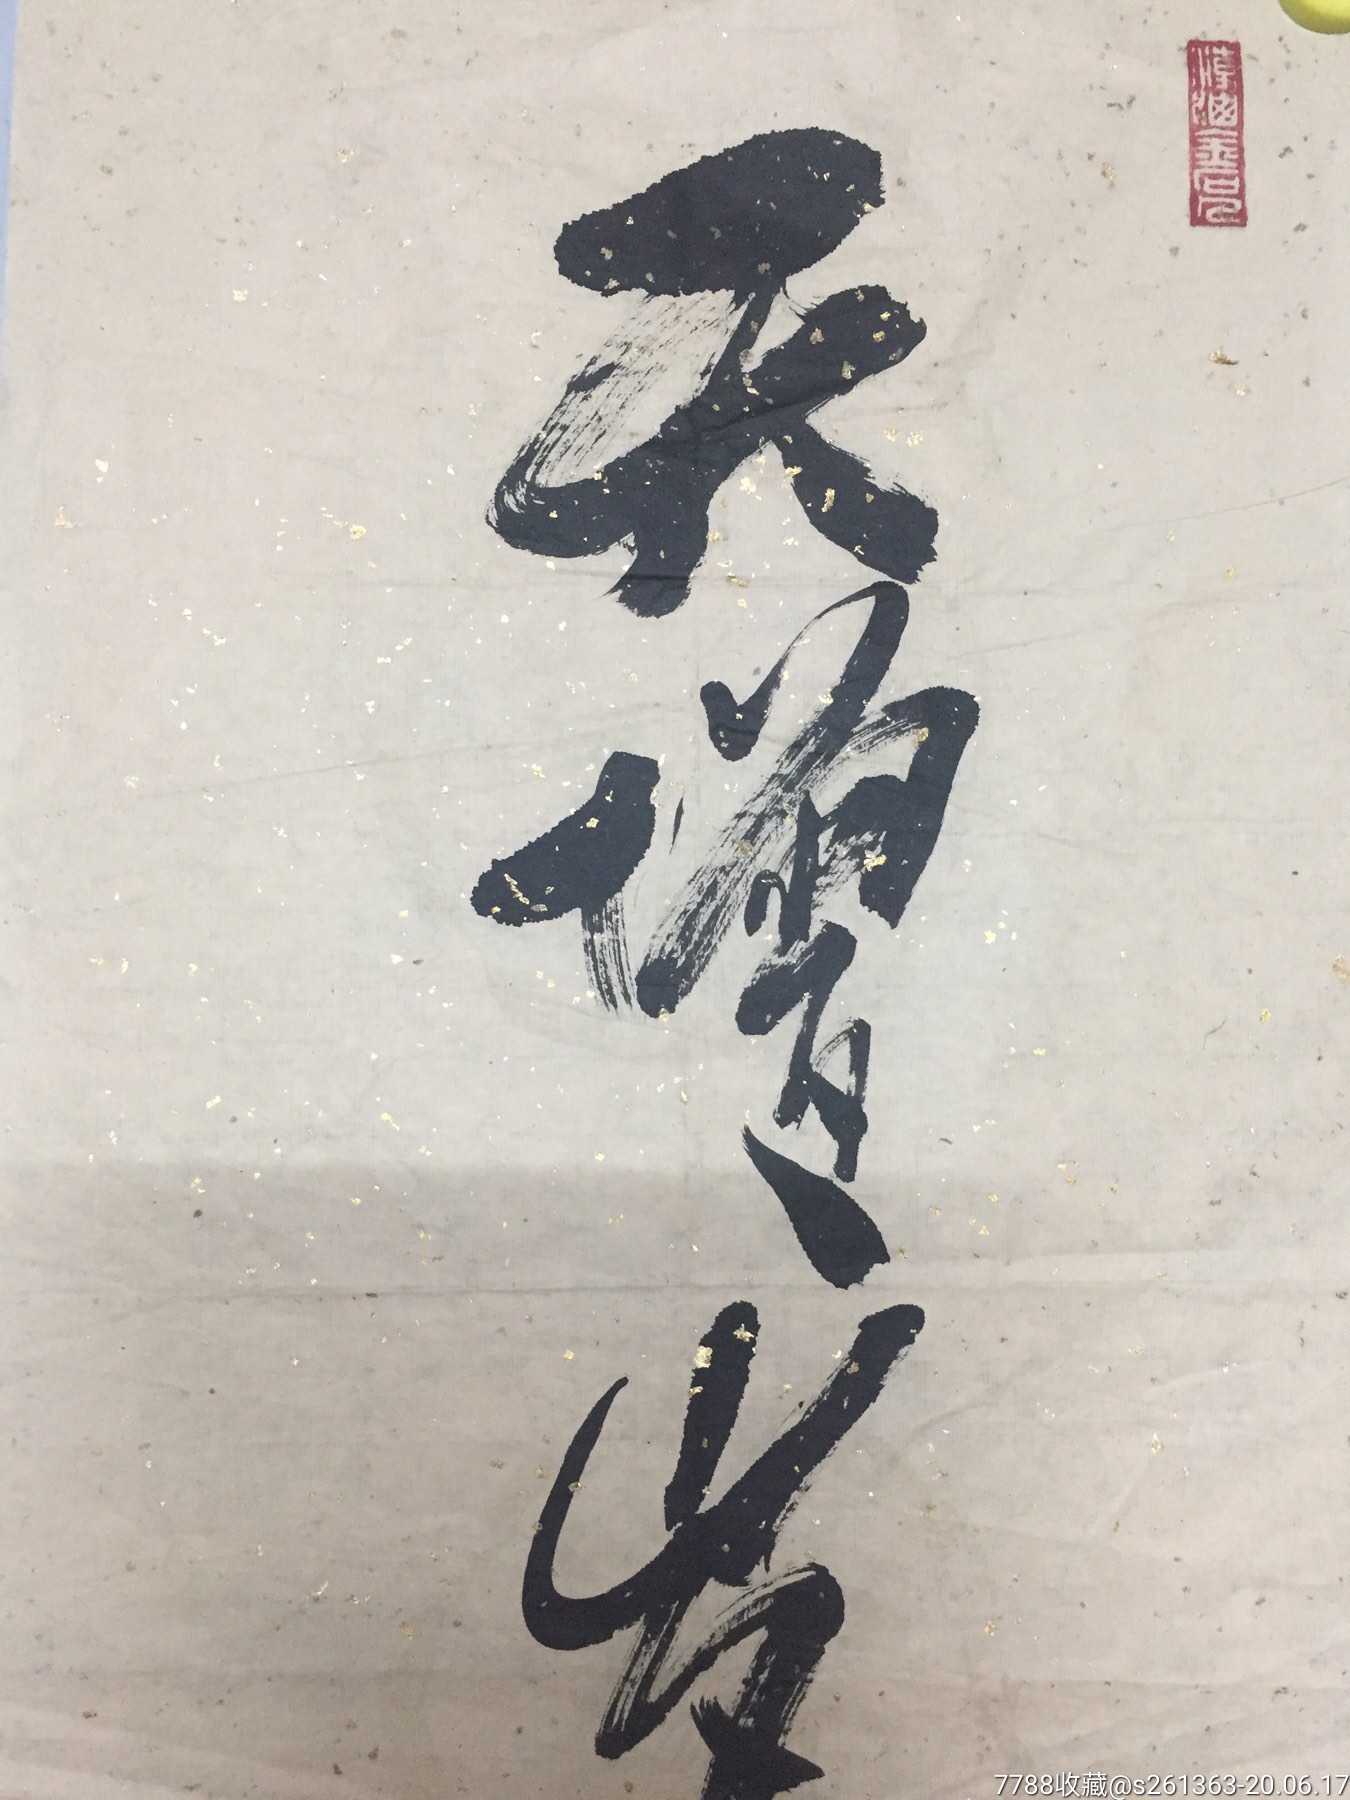 天增歲
7788收藏@s261363-20.06.17